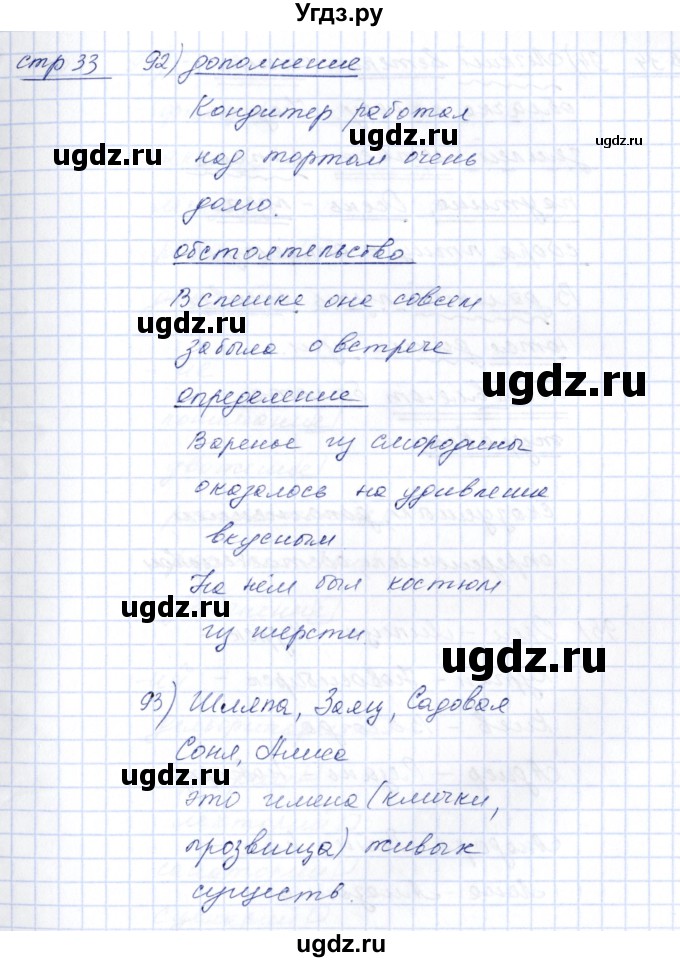 Угдз.ру
стр 33 92) дополнение
Кондитер работал
ugdz.ru ugdz.ru ugdz.ru
над тортом очень
долго.
обстоятельство
В спешке она совсем
ugdz.ru ugdz.ru
забыла о встрече
ugdz.ru
определение
Варенье из смородины
ugdz.ru ugdz.ru
оказалось на удивление
вкусным
На нём был костюм
ugdz.ru
из шерсти
ugdz.ru
93) Шляпа, Заяц, Садовая
Соня, Алиса
ugdz.ru ugdz.ru
это имена (клички,
прозвища) живых
ugdz.ru
существ.
ugdz.ru